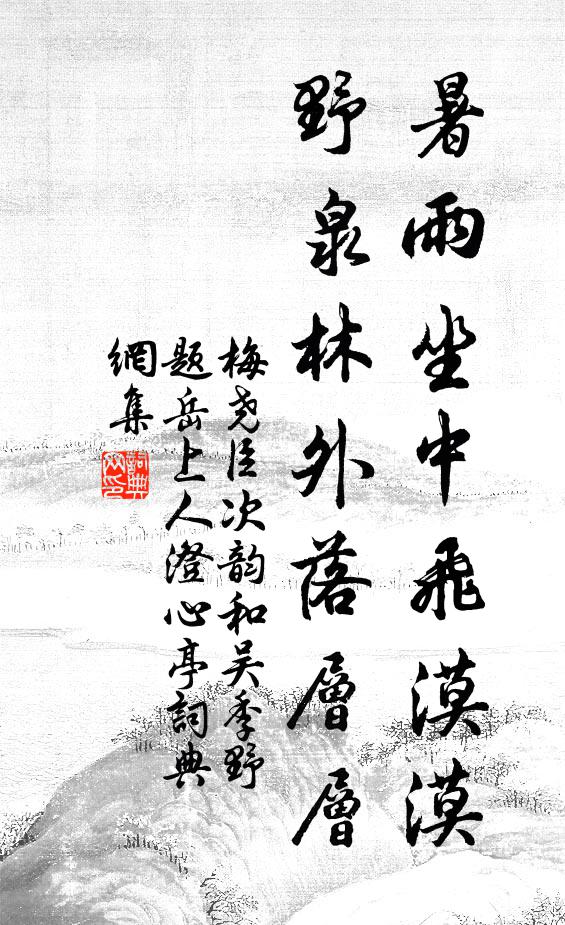 暑雨坐中飛漠漠
野泉林外落層層
梅尧臣次韵和吴季野
题岳上人澄心亭詞典
網集
詞典